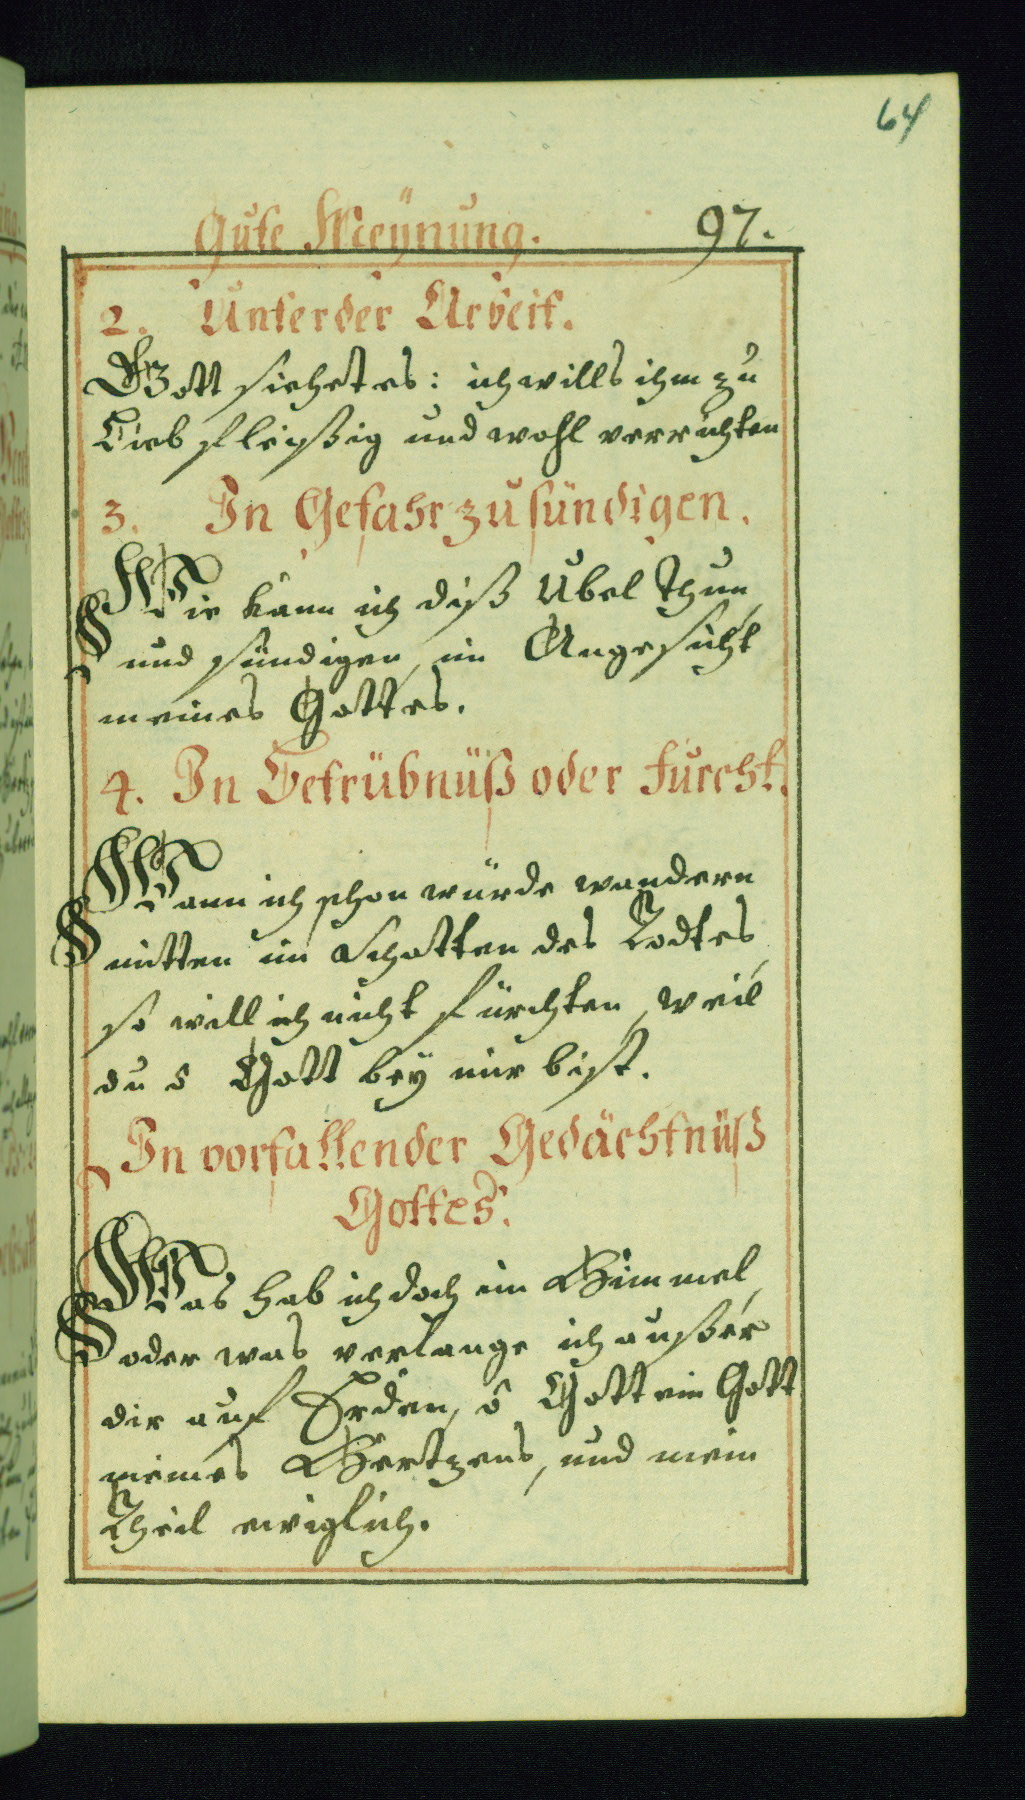 64
Gute Meÿnung. 97.
2. Unter der Arbeit.
Gott siehet es: ich wills ihm zu
Lieb fleißig und wohl verrichten
3. In Gefahr zu sündigen.
Wie kann ich diß Übel thun,
und sündigen, im Angesicht
meines Gottes.
4. In Betrübnüß oder furcht.
Wann ich schon würde wandern
mitten im Schatten des Todtes,
so will ich nicht fürchten, weil
du ô Gott beÿ mir bist.
In vorfallender Gedächtnüß
Gottes.
Was hab ich doch im Himmel,
oder was verlange ich außer
dir auf Erden, ô Gott ein Gott
meines Hertzens, und mein
Theil ewiglich.